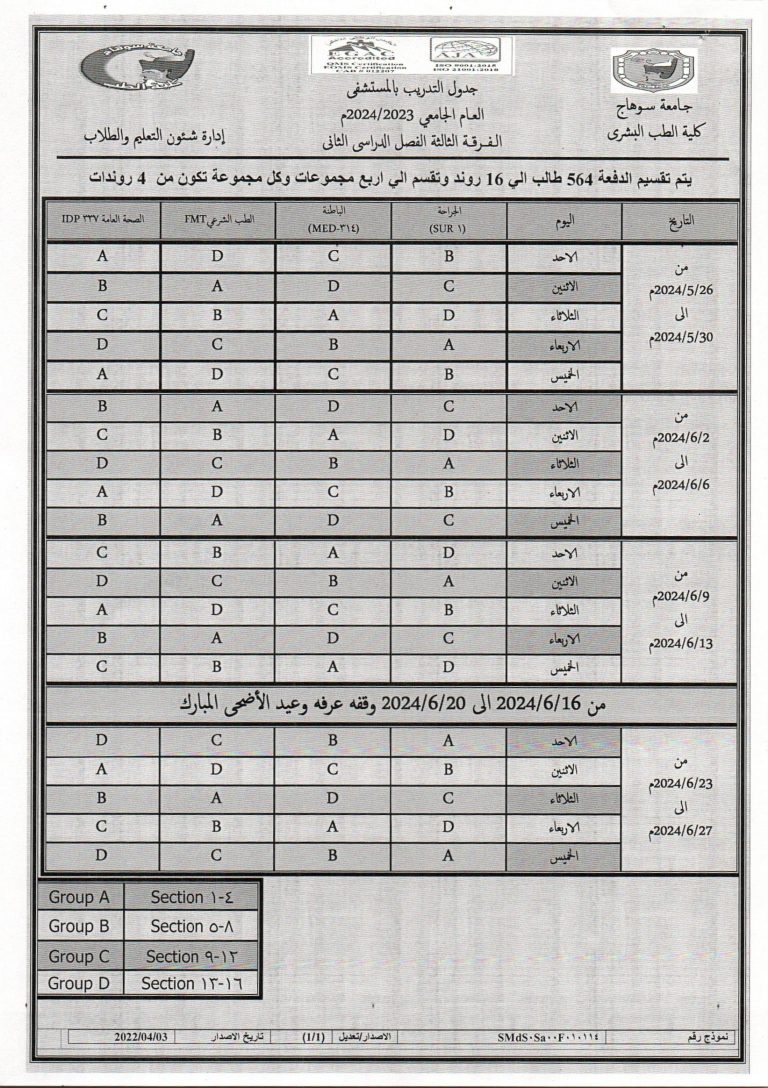 جامعة سوهاج
كلية الطب البشرى
EGAC
Accredited
QMS Certification
EOMS Certification
CAB # 012207
AJA
ISO 9001:2015
ISO 21001:2018
جدول التدريب بالمستشفى
العام الجامعي 2024/2023م
الفرقة الثالثة الفصل الدراسى الثانى
جامعة سوهاج
كلية الطب
إدارة شئون التعليم والطلاب
يتم تقسيم الدفعة 564 طالب الي 16 روند وتقسم الي اربع مجموعات وكل مجموعة تكون من 4 روندات
التاريخ اليوم الجراحة (SUR ١) الباطنة (MED-٣١٤) الطب الشرعي FMT الصحة العامة IDP ٣٣٧
من 2024/5/26م الى 2024/5/30م
الاحد B C D A
الاثنين C D A B
الثلاثاء D A B C
الاربعاء A B C D
الخميس B C D A
من 2024/6/2م الى 2024/6/6م
الاحد C D A B
الاثنين D A B C
الثلاثاء A B C D
الاربعاء B C D A
الخميس C D A B
من 2024/6/9م الى 2024/6/13م
الاحد D A B C
الاثنين A B C D
الثلاثاء B C D A
الاربعاء C D A B
الخميس D A B C
من 2024/6/16 الى 2024/6/20 وقفه عرفه وعيد الأضحى المبارك
من 2024/6/23م الى 2024/6/27م
الاحد A B C D
الاثنين B C D A
الثلاثاء C D A B
الاربعاء D A B C
الخميس A B C D
Group A Section ١-٤
Group B Section ٥-٨
Group C Section ٩-١٢
Group D Section ١٣-١٦
نموذج رقم SMdS٠Sa٠٠F٠١٠١١٤ الاصدار/تعديل (1/1) تاريخ الاصدار 2022/04/03